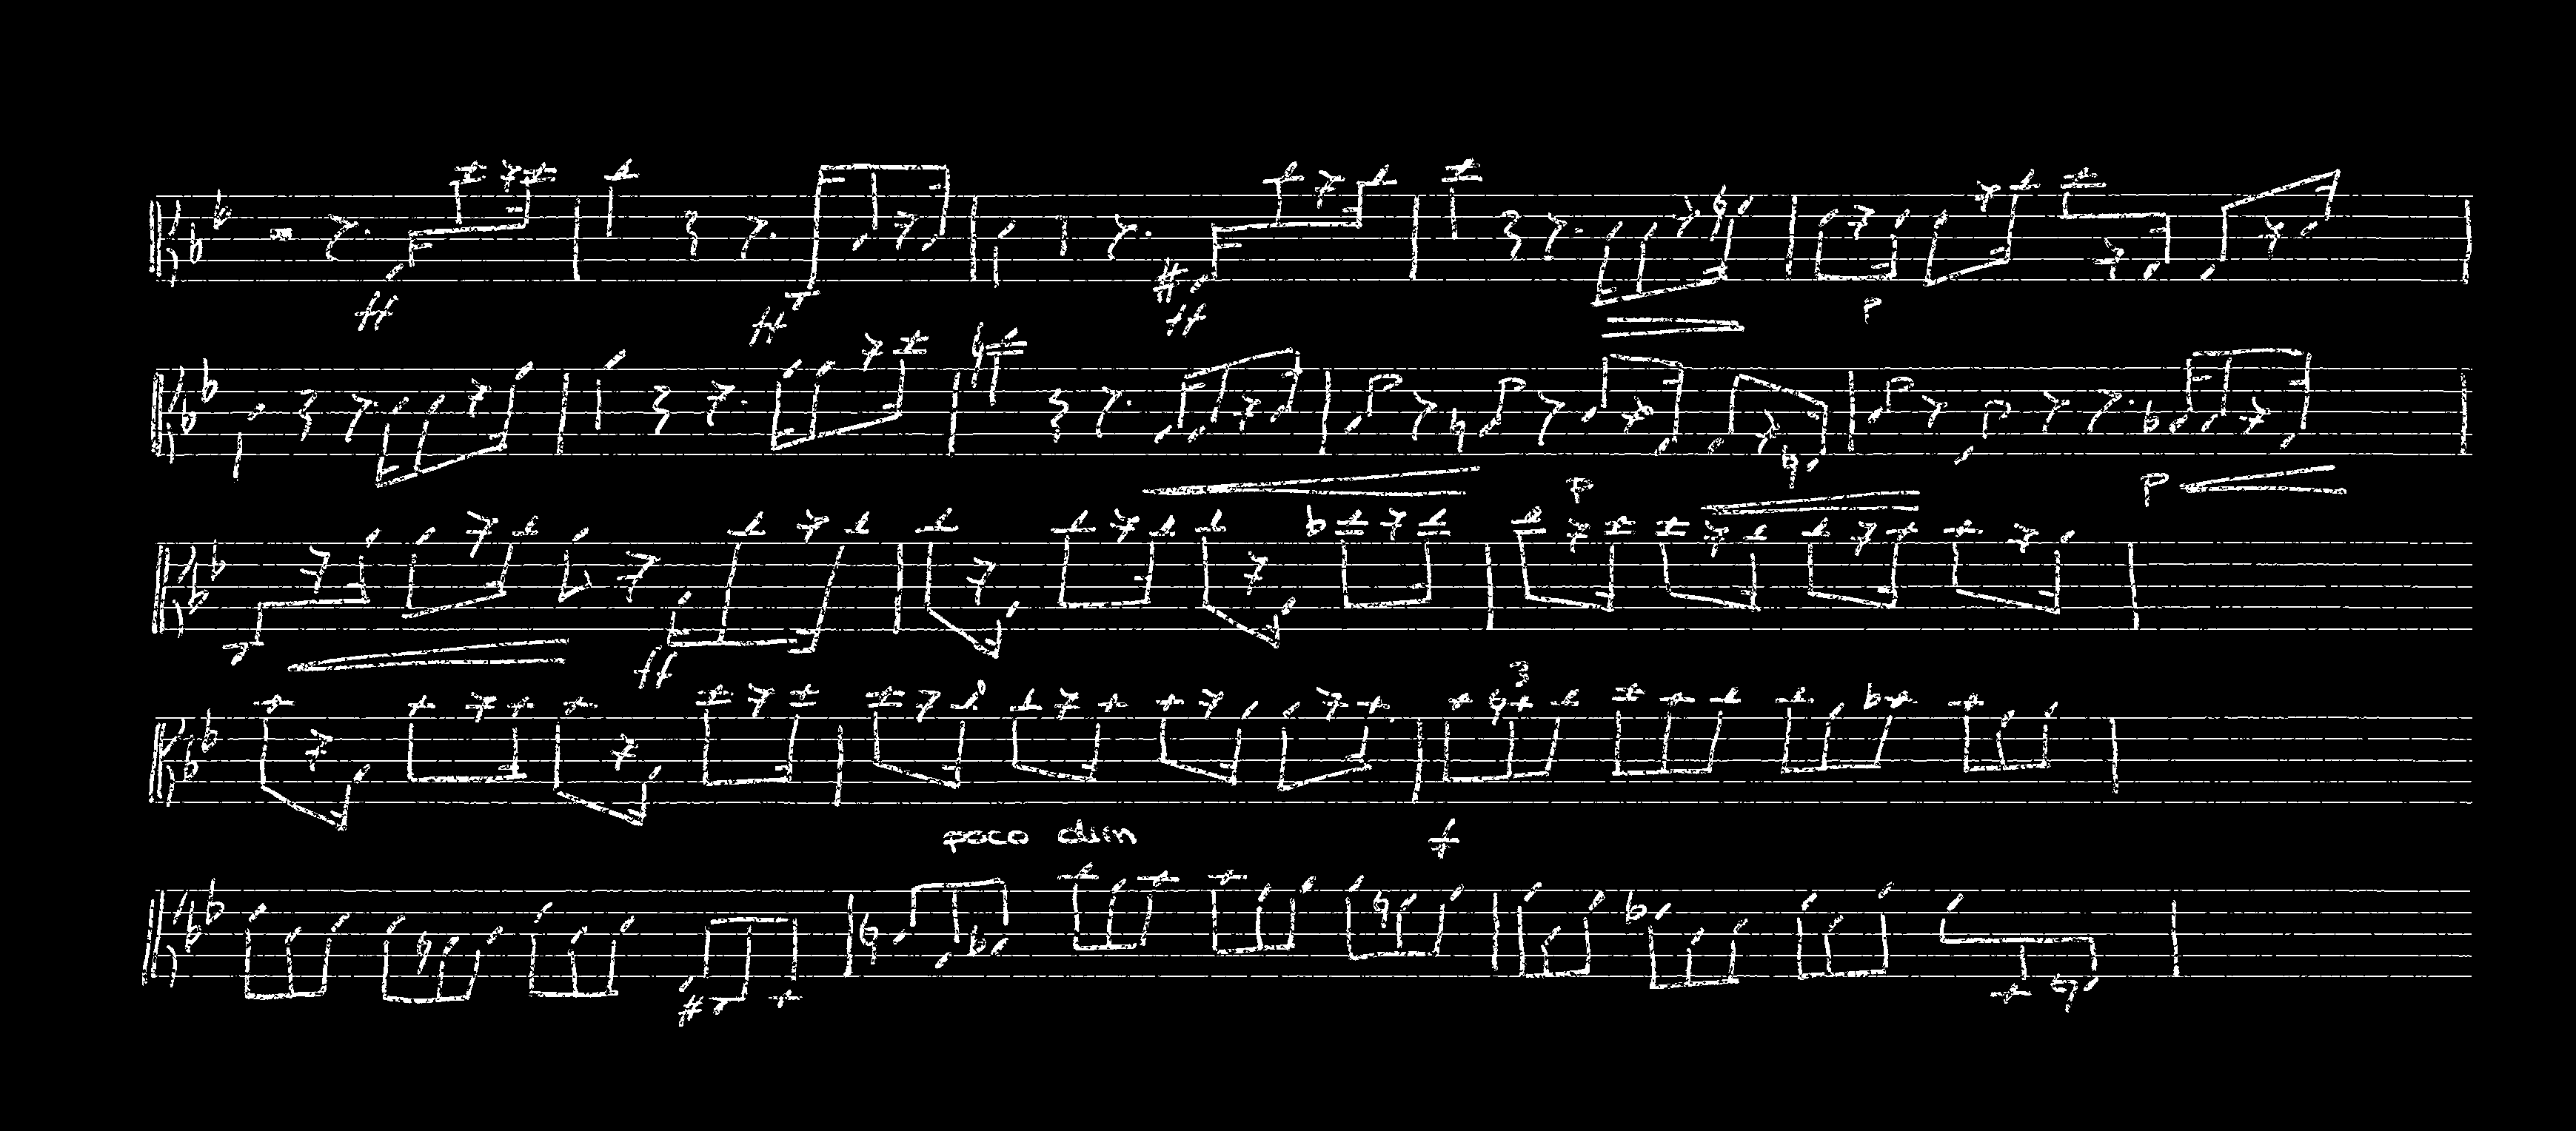 ff ff ff
p
p p
ff
3
poco dim f